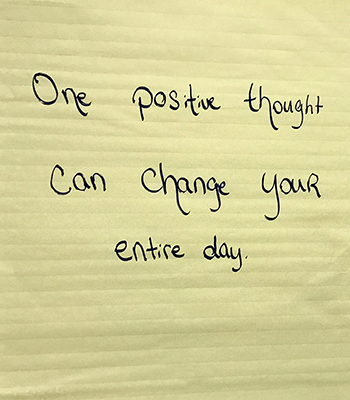 One positive thought
Can Change youR
entire day.